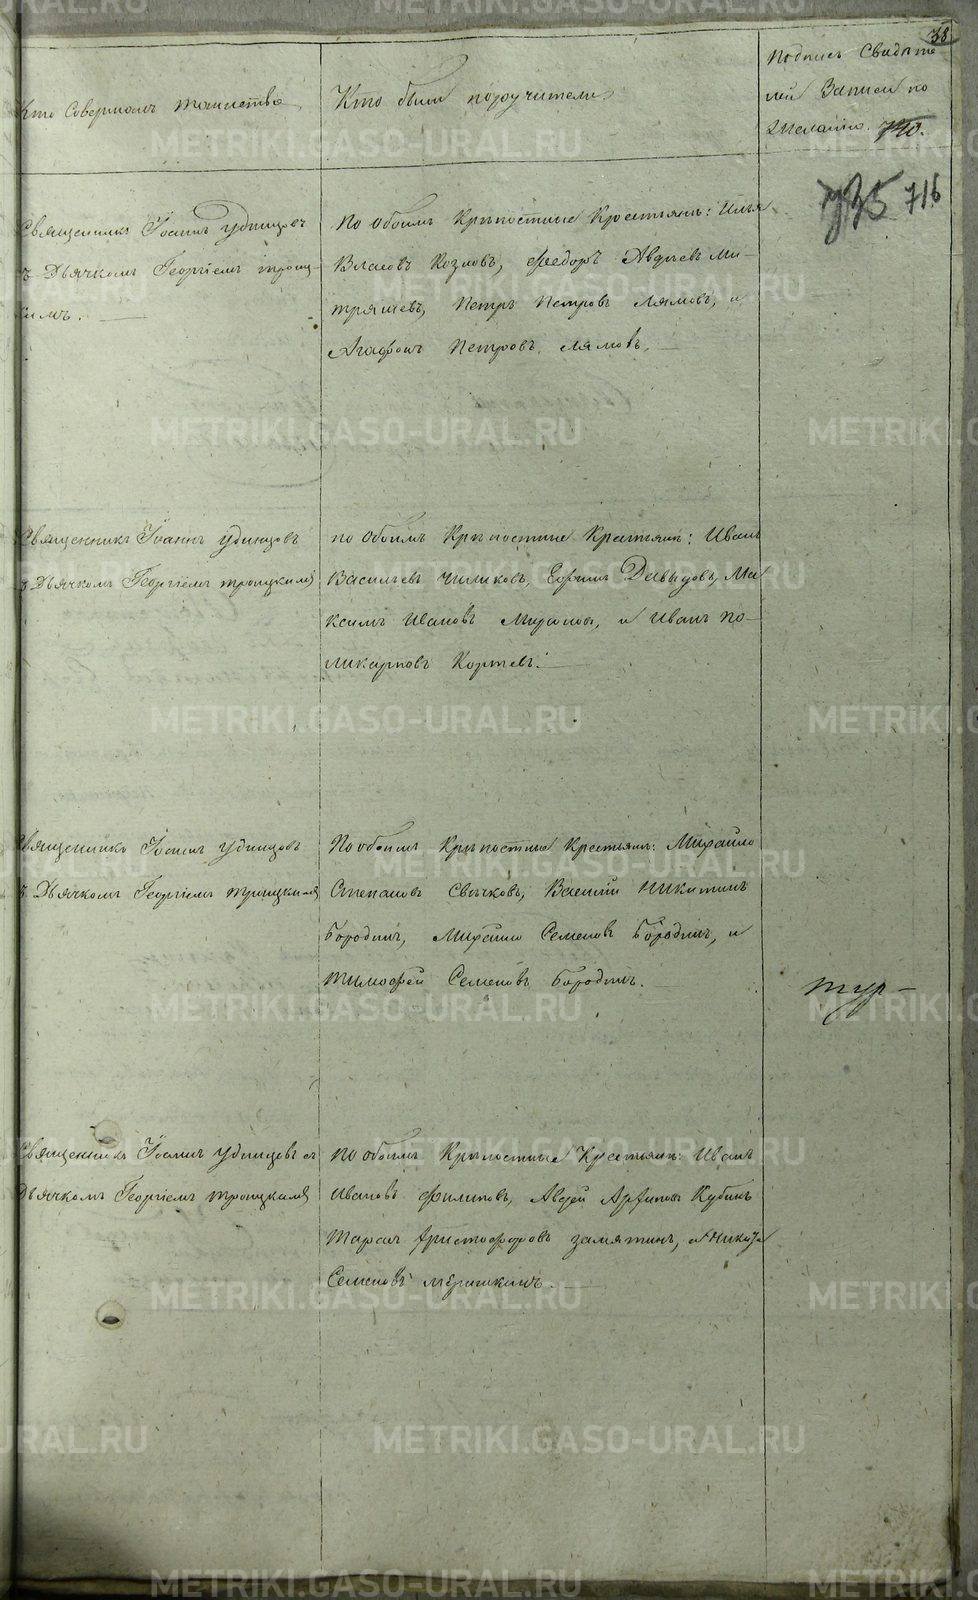 38
Кто Совершалъ таинство
Кто были поручители
Подпись Свидѣте
лей Записи по
Желанію.
716
Священникъ Іоаннъ Удинцовъ
съ Дьячкомъ Георгіемъ Троиц-
кимъ.
По обоимъ Крѣпостные Крестьянъ: Илья
Власовъ Козловъ, Федоръ Авдѣевъ Ми-
тряшевъ, Петръ Петровъ Лямовъ, и
Агафонъ Петровъ Лямовъ.
Священникъ Іоаннъ Удинцовъ
съ Дьячкомъ Георгіемъ Троицкимъ
по обоимъ Крѣпостные Крестьянъ: Иванъ
Васильевъ Чиликовъ, Ефимъ Давыдовъ, Ма
ксимъ Ивановъ и Иванъ По-
ликарповъ
Священникъ Іоаннъ Удинцовъ
съ Дьячкомъ Георгіемъ Троицкимъ
По обоимъ Крѣпостные Крестьянъ: Михайло
Степановъ Свѣчковъ, Василій Никитинъ
Бородинъ, Михайло Семеновъ Бородинъ, и
Тимофей Семеновъ Бородинъ.
Священникъ Іоаннъ Удинцовъ съ
Дьячкомъ Георгіемъ Троицкимъ
по обоимъ Крѣпостные Крестьянъ: Иванъ
Ивановъ Филиповъ, Авдей
Тарасъ Христофоровъ Замятинъ, и
Семеновъ
METRIKI.GASO-URAL.RU